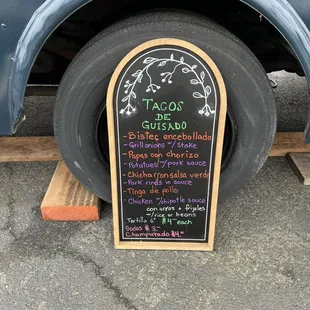 TACOS
DE
GUISADO
- Bistec encebollado
- Grill onions w/Steak
- Papas con chorizo
Potatoes w/pork sauce
- Chicharron salsa verde
- Pork rinds in sauce
- Tinga de pollo
- Chicken w/chipotle sauce
con arros o frijoles
w/rice or beans
Tortilla 6" $4 each
Sodas $3.
Champurrado $4.